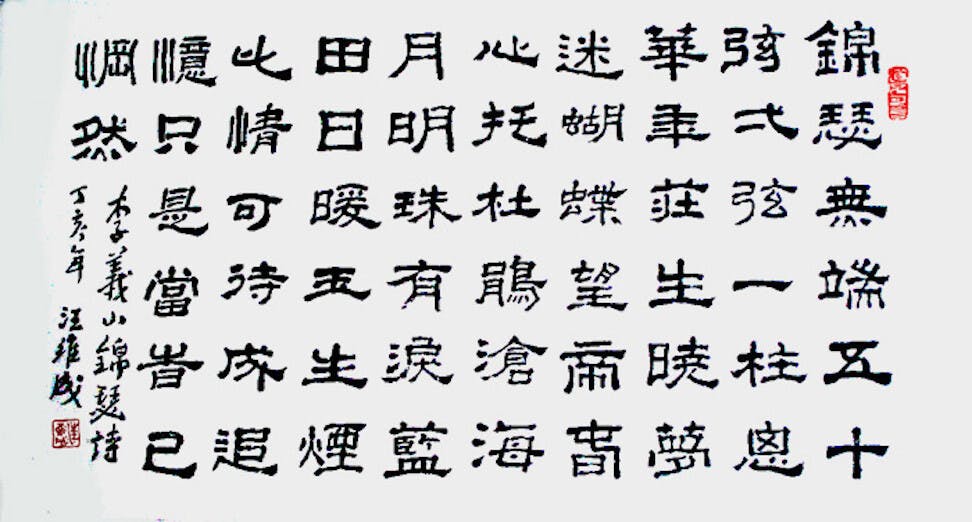 錦瑟無端五十
弦弌弦一柱思
華年莊生曉夢
迷蝴蝶望帝春
心托杜鵑滄海
月明珠有淚藍
田日暖玉生煙
此情可待成追
憶只是當旹已
惘然
李義山錦瑟詩
丁亥年 汪維成